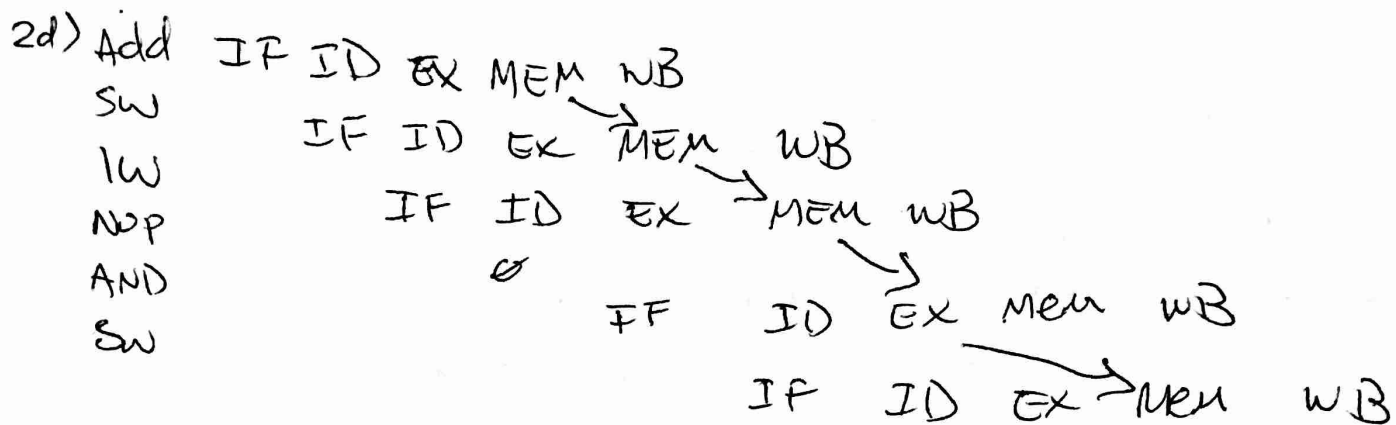 2d) Add IF ID EX MEM WB
SW IF ID EX MEM WB
lW IF ID EX MEM WB
NOP Ø
AND IF ID EX Mem WB
SW IF ID EX Mem WB